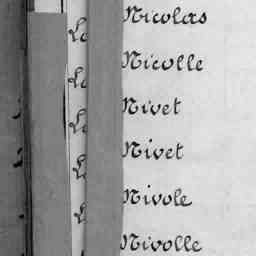 Nicolas
Nicolle
Nivet
Nivet
Nivole
Nivolle